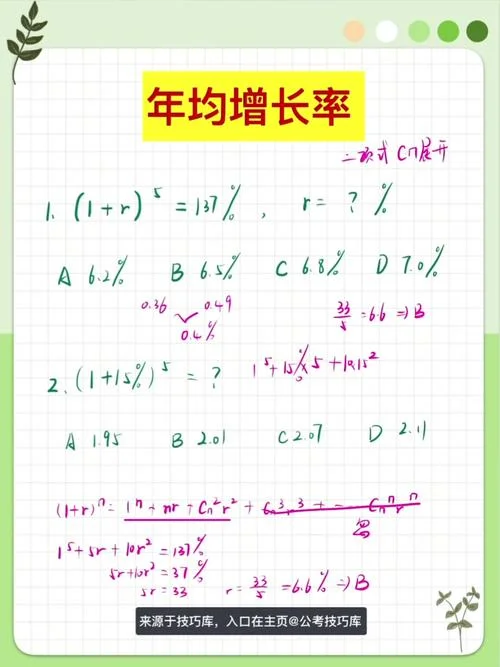 年均增长率
二项式 Cn展开
1. (1+r)⁵ = 137% , r = ? %
A 6.2% B 6.5% C 6.8% D 7.0%
0.36 0.49
0.4%
33/5 = 6.6 ⇒ B
2. (1+15%)⁵ = ?
1⁵+15%×5+10.15²
A 1.95 B 2.01 C 2.07 D 2.11
(1+r)ⁿ = 1ⁿ + nr + Cn²r² + Cn³r³ + --- Cnⁿrⁿ
忽
1⁵+5r+10r² = 137%
5r+10r² = 37%
5r = 33 r = 33/5 = 6.6% ⇒ B
来源于技巧库，入口在主页@公考技巧库